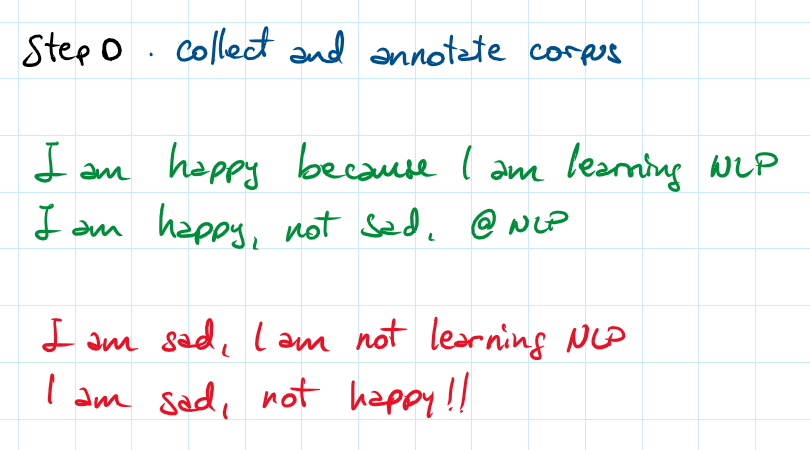 Step 0 . collect and annotate corpus
I am happy because I am learning NLP
I am happy, not sad. @NLP
I am sad, I am not learning NLP
I am sad, not happy!!